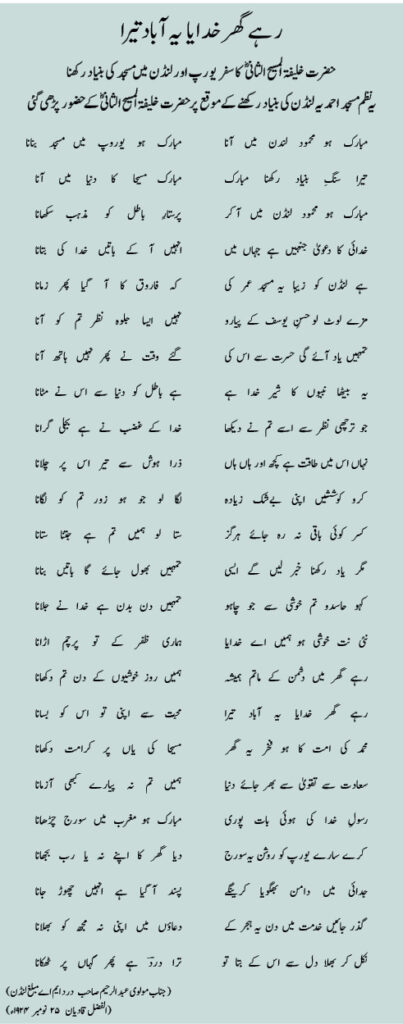 رہے گھر خدایا یہ آباد تیرا
حضرت خلیفۃ المسیح الثانیؓ کا سفر یورپ اور لنڈن میں مسجد کی بنیاد رکھنا
یہ نظم مسجد احمدیہ لنڈن کی بنیاد رکھنے کے موقع پر حضرت خلیفۃ المسیح الثانیؓ کے حضور پڑھی گئی
مبارک ہو محمود لندن میں آنا مبارک ہو یوروپ میں مسجد بنانا
تیرا سنگِ بنیاد رکھنا مبارک مبارک مسیحا کا دنیا میں آنا
مبارک ہو محمود لنڈن میں آ کر پرستارِ باطل کو مذہب سکھانا
خدائی کا دعویٰ جنہیں ہے جہاں میں انہیں آ کے باتیں خدا کی بتانا
ہے لنڈن کو زیبا یہ مسجد عمر کی کہ فاروق کا آ گیا پھر زمانا
مزے لوٹ لو حسنِ یوسف کے پیارو نہیں ایسا جلوہ نظر تم کو آنا
تمہیں یاد آئے گی حسرت سے اس کی گئے وقت نے پھر نہیں ہاتھ آنا
یہ بیٹھا نبیوں کا شیر خدا ہے ہے باطل کو دنیا سے اس نے مٹانا
جو ترچھی نظر سے اسے تم نے دیکھا خدا کے غضب نے ہے بجلی گرانا
نہاں اس میں طاقت ہے کچھ اور ہاں ہاں ذرا ہوش سے تیر اس پر چلانا
کرو کوششیں اپنی بےشک زیادہ لگا لو جو ہو زور تم کو لگانا
کسر کوئی باقی نہ رہ جائے ہرگز ستا لو ہمیں تم ہے جتنا ستانا
مگر یاد رکھنا خبر لیں گے ایسی تمہیں بھول جائے گا باتیں بنانا
کہو حاسدو تم خوشی سے جو چاہو تمہیں دن بدن ہے خدا نے جلانا
نئی نت خوشی ہو ہمیں اے خدایا ہماری ظفر کے تو پرچم اڑانا
رہے گھر میں دشمن کے ماتم ہمیشہ ہمیں روز خوشیوں کے دن تم دکھانا
رہے گھر خدایا یہ آباد تیرا محبت سے اپنی تو اس کو بسانا
محمد کی امت کا ہو فخر یہ گھر مسیحا کی یاں پر کرامت دکھانا
سعادت سے تقویٰ سے بھر جائے دنیا ہمیں تم نہ پیارے کبھی آزمانا
رسولِ خدا کی ہوئی بات پوری مبارک ہو مغرب میں سورج چڑھانا
کرے سارے یورپ کو روشن یہ سورج دیا گھر کا اپنے نہ یا رب بجھانا
جدائی میں دامن بھگویا کرینگے پسند آ گیا ہے انہیں چھوڑ جانا
گذر جائیں خدمت میں دن یہ ہجر کے دعاؤں میں اپنی نہ مجھ کو بھلانا
نکل کر بھلا دل سے اس کے بتا تو ترا دردؔ ہے پھر کہاں پر ٹھکانا
(جناب مولوی عبد الرحیم صاحب درد ایم اے مبلغ لنڈن)
(الفضل قادیان ۲۵ نومبر ۱۹۲۴ء)